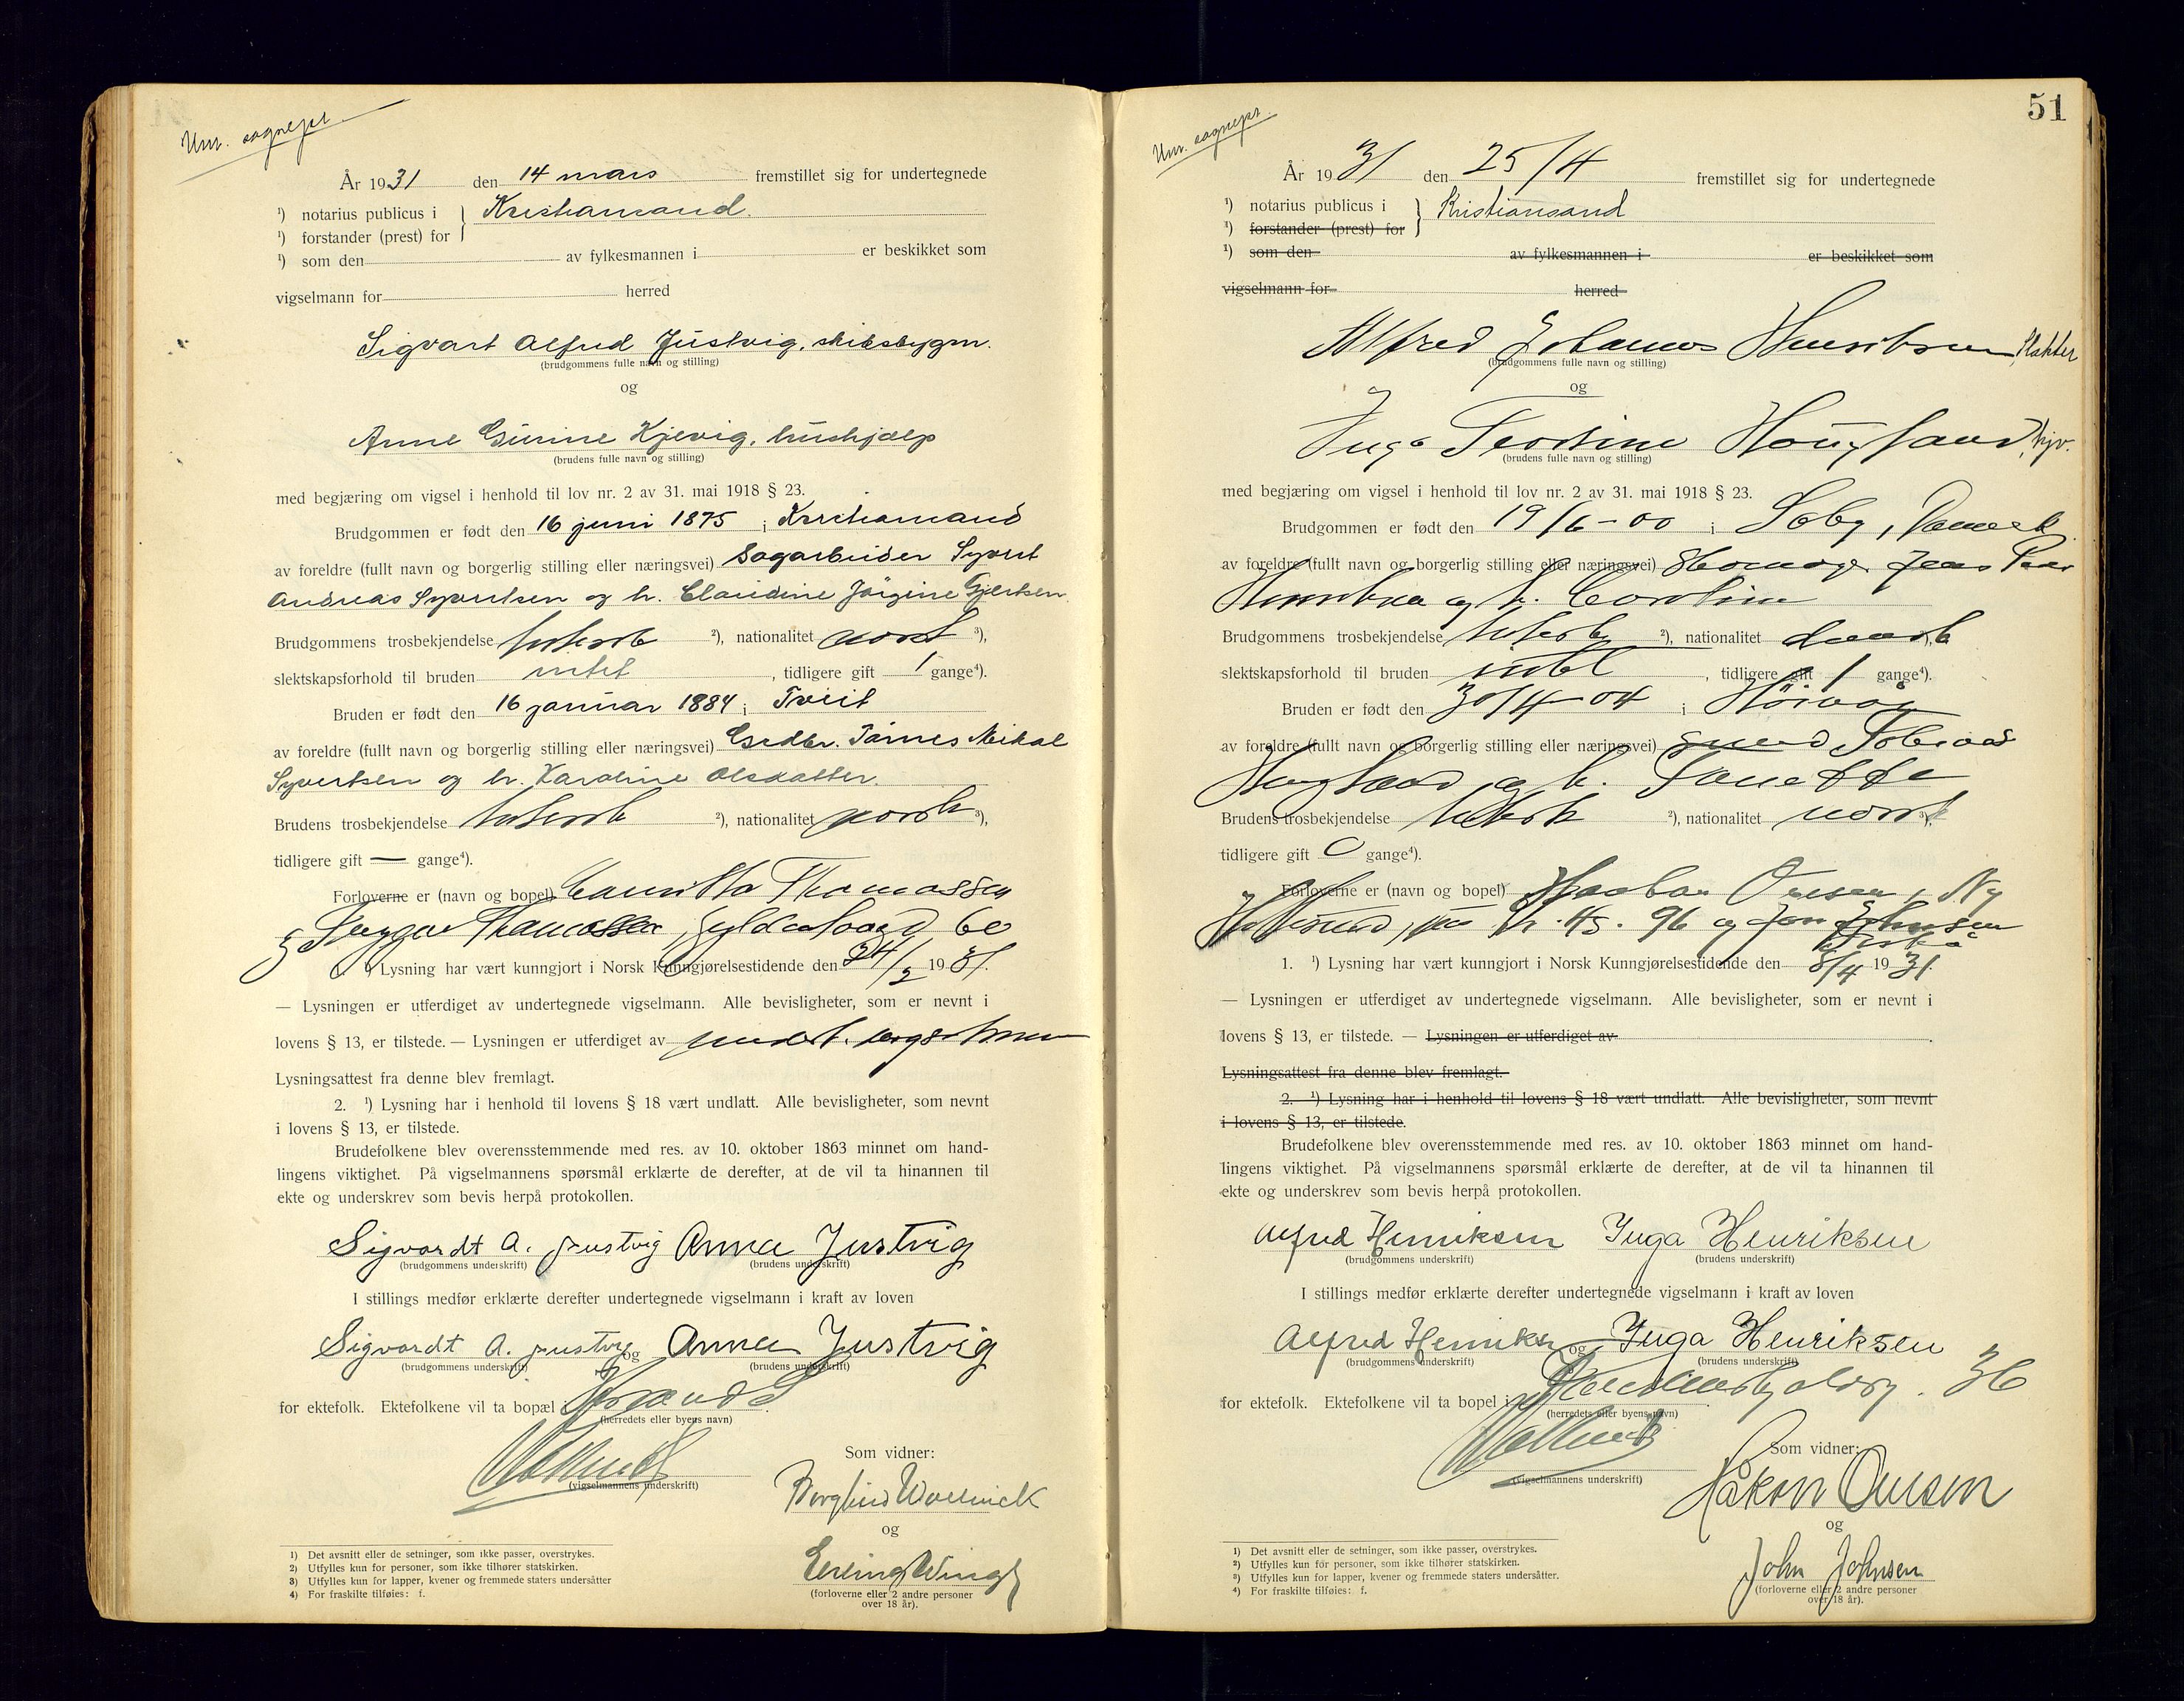 Unr. sogneprt
År 1931 den 14 mars fremstillet sig for undertegnede
¹) notarius publicus i } Kristiansand.
¹) forstander (prest) for
¹) som den av fylkesmannen i er beskikket som
vigselmann for herred
Sigvart Alfred Justvig, skibsbygm.
(brudgommens fulle navn og stilling)
og
Anne Gurine Kjevig, hushjælp
(brudens fulle navn og stilling)
med begjæring om vigsel i henhold til lov nr. 2 av 31. mai 1918 § 23.
Brudgommen er født den 16 juni 1875 i Kristiansand
av foreldre (fullt navn og borgerlig stilling eller næringsvei) Sagarbeider Syvert
Andreas Syvertsen og h. Claudine Jørgine Gjertsen
Brudgommens trosbekjendelse luthersk ²), nationalitet norsk ³),
slektskapsforhold til bruden intet, tidligere gift 1 gange⁴).
Bruden er født den 16 januar 1884 i Tveit
av foreldre (fullt navn og borgerlig stilling eller næringsvei) Grdbr. Tønnes Mikal
Syvertsen og h. Karoline Olsdatter.
Brudens trosbekjendelse luthersk ²), nationalitet norsk ³),
tidligere gift — gange⁴).
Forloverne er (navn og bopel) Thomassen
og Thomassen, Gyldenløvesgt 60
1. ¹) Lysning har vært kunngjort i Norsk Kunngjørelsestidende den 24/2 1931.
— Lysningen er utferdiget av undertegnede vigselmann. Alle bevisligheter, som er nevnt i
lovens § 13, er tilstede. — Lysningen er utferdiget av undert. vigselmann
Lysningsattest fra denne blev fremlagt.
2. ¹) Lysning har i henhold til lovens § 18 vært undlatt. Alle bevisligheter, som nevnt
i lovens § 13, er tilstede.
Brudefolkene blev overensstemmende med res. av 10. oktober 1863 minnet om hand-
lingens viktighet. På vigselmannens spørsmål erklærte de derefter, at de vil ta hinannen til
ekte og underskrev som bevis herpå protokollen.
Sigvardt A. Justvig Anna Justvig
(brudgommens underskrift) (brudens underskrift)
I stillings medfør erklærte derefter undertegnede vigselmann i kraft av loven
Sigvardt A. Justvig og Anna Justvig
(brudgommens underskrift) (brudens underskrift)
for ektefolk. Ektefolkene vil ta bopæl i Krsand S
(herredets eller byens navn)
(vigselmannens underskrift)
Som vidner:
og
Erling
(forloverne eller 2 andre personer
over 18 år).
1) Det avsnitt eller de setninger, som ikke passer, overstrykes.
2) Utfylles kun for personer, som ikke tilhører statskirken.
3) Utfylles kun for lapper, kvener og fremmede staters undersåtter
4) For fraskilte tilføies: f.
51
Unr. sogneprt
År 1931 den 25/4 fremstillet sig for undertegnede
¹) notarius publicus i } Kristiansand
¹) forstander (prest) for
¹) som den av fylkesmannen i er beskikket som
vigselmann for herred
Alfred Johannes Henriksen, Slakter
(brudgommens fulle navn og stilling)
og
Inga Teodine Hougland, hjv.
(brudens fulle navn og stilling)
med begjæring om vigsel i henhold til lov nr. 2 av 31. mai 1918 § 23.
Brudgommen er født den 19/6-00 i Søby, Danmark
av foreldre (fullt navn og borgerlig stilling eller næringsvei) Skomager Jens
Henriksen og h. Caroline
Brudgommens trosbekjendelse luthersk ²), nationalitet dansk ³),
slektskapsforhold til bruden intet, tidligere gift 1 gange⁴).
Bruden er født den 30/4-04 i Høivåg
av foreldre (fullt navn og borgerlig stilling eller næringsvei) Tobias
Hougland og h. Tanette
Brudens trosbekjendelse luthersk ²), nationalitet norsk ³),
tidligere gift 0 gange⁴).
Forloverne er (navn og bopel) Haakon Ousen, Ny
96 og John Johnsen
1. ¹) Lysning har vært kunngjort i Norsk Kunngjørelsestidende den 8/4 1931.
— Lysningen er utferdiget av undertegnede vigselmann. Alle bevisligheter, som er nevnt i
lovens § 13, er tilstede. — Lysningen er utferdiget av .
Lysningsattest fra denne blev fremlagt.
2. ¹) Lysning har i henhold til lovens § 18 vært undlatt. Alle bevisligheter, som nevnt
i lovens § 13, er tilstede.
Brudefolkene blev overensstemmende med res. av 10. oktober 1863 minnet om hand-
lingens viktighet. På vigselmannens spørsmål erklærte de derefter, at de vil ta hinannen til
ekte og underskrev som bevis herpå protokollen.
Alfred Henriksen Inga Henriksen
(brudgommens underskrift) (brudens underskrift)
I stillings medfør erklærte derefter undertegnede vigselmann i kraft av loven
Alfred Henriksen og Inga Henriksen
(brudgommens underskrift) (brudens underskrift)
for ektefolk. Ektefolkene vil ta bopel i 36
(herredets eller byens navn)
(vigselmannens underskrift)
Som vidner:
Håkon Ousen
og
John Johnsen
(forloverne eller 2 andre personer
over 18 år).
¹) Det avsnitt eller de setninger, som ikke passer, overstrykes.
²) Utfylles kun for personer, som ikke tilhører statskirken.
³) Utfylles kun for lapper, kvener og fremmede staters undersåtter.
⁴) For fraskilte tilføies: f.